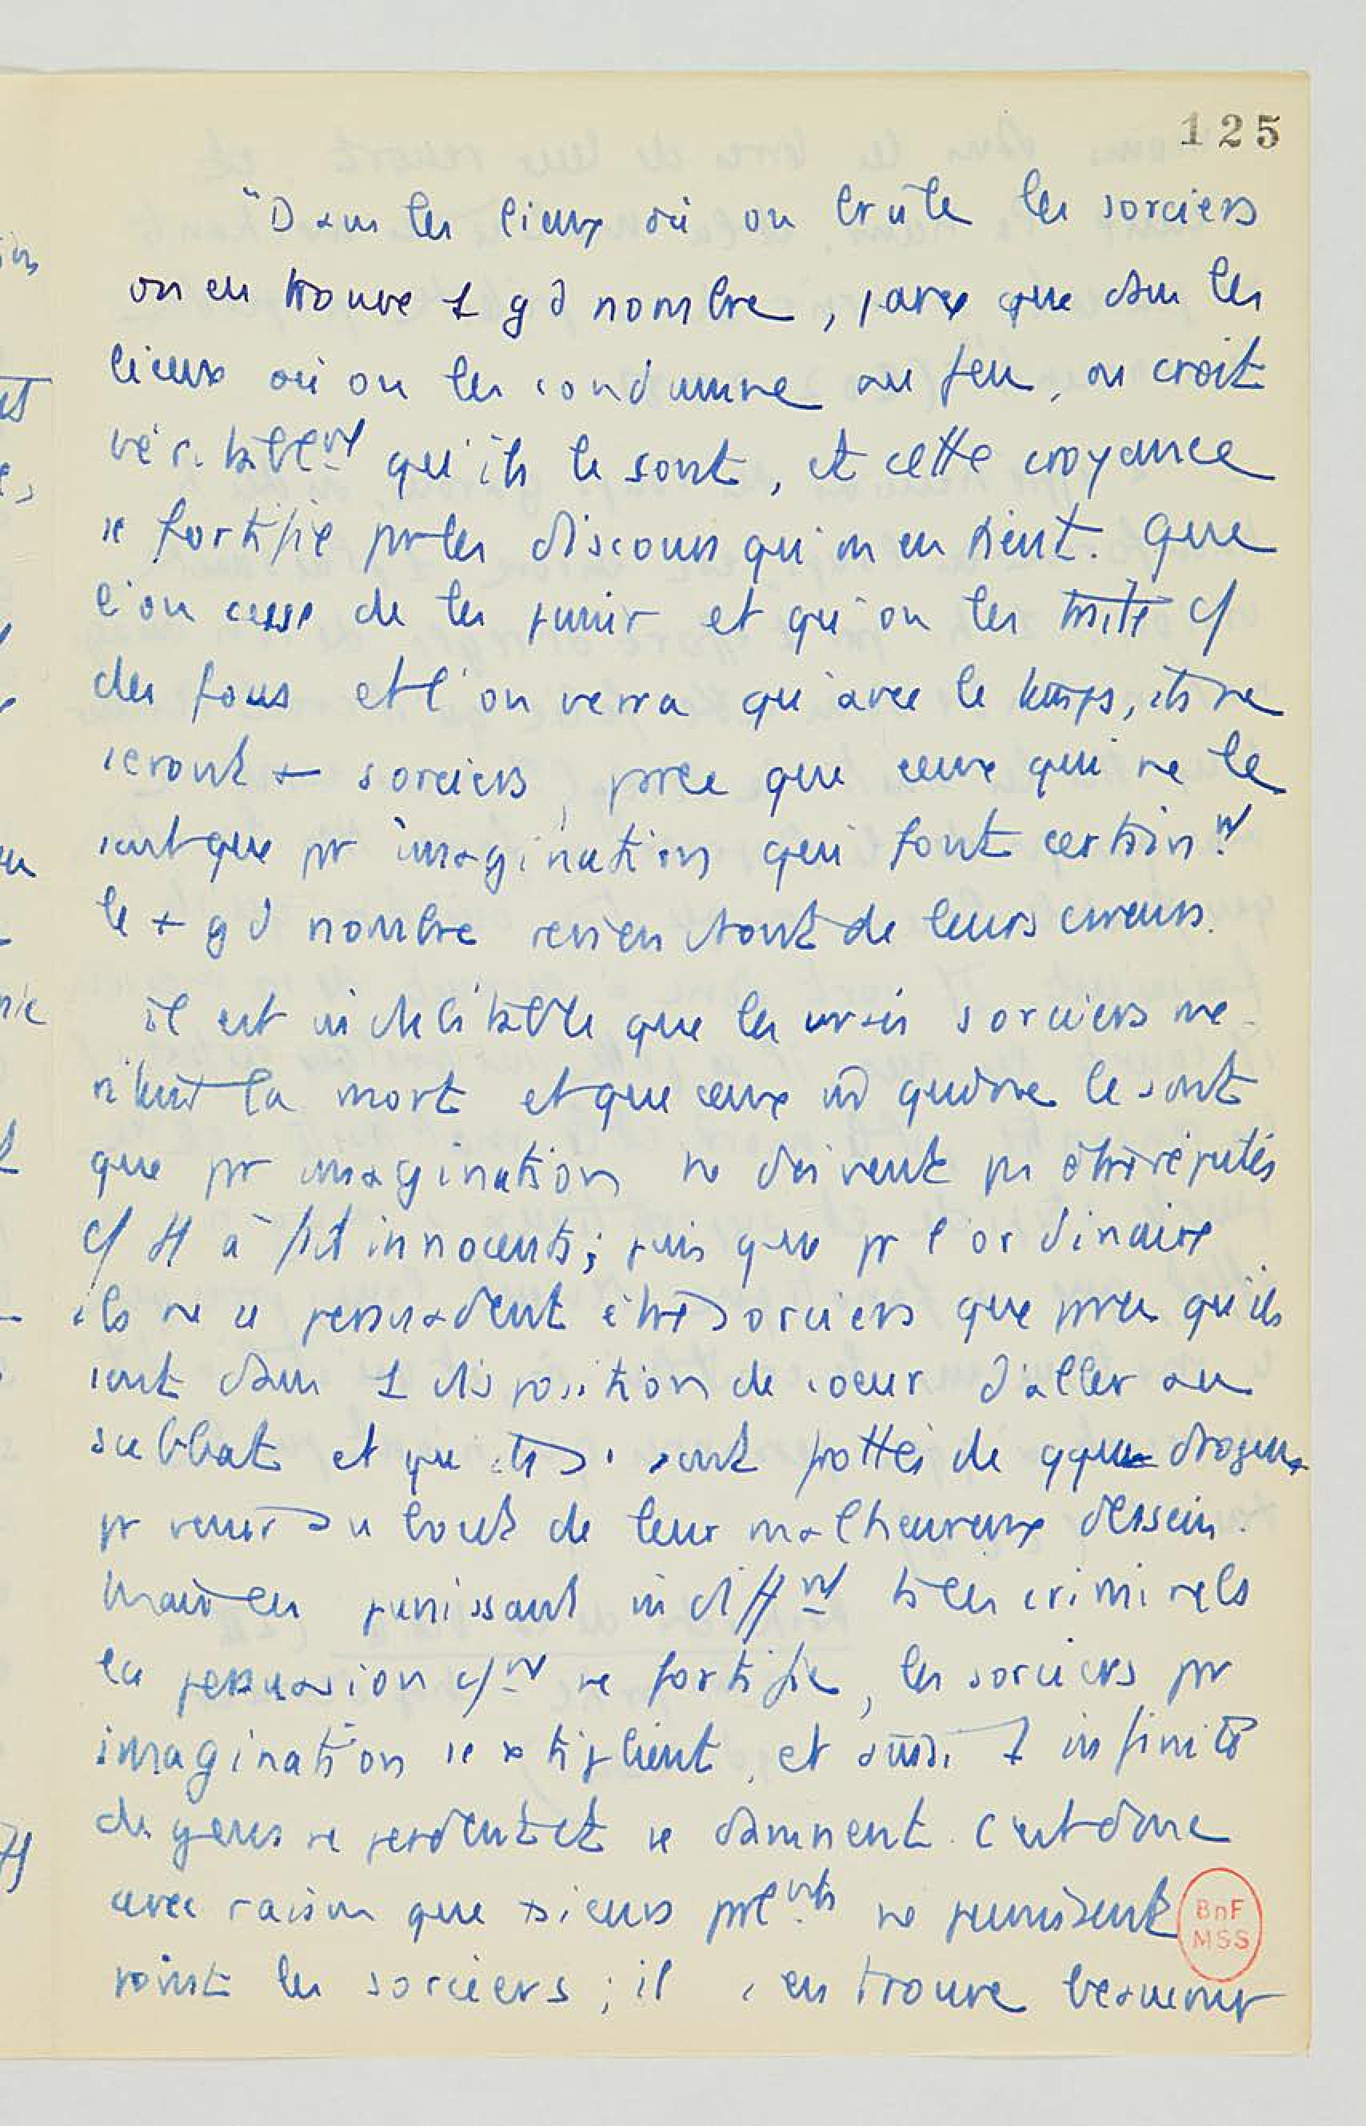 125
"Dans les lieux où on brûle les sorciers
on en trouve 1 gd nombre, parce que dans les
lieux où on les condamne au feu, on croit
véritablemt qu'ils le sont, et cette croyance
se fortifie par les discours qu'on en tient. Que
l'on cesse de les punir et qu'on les traite c/
des fous et l'on verra qu'avec le temps, ils ne
seront + sorciers, parce que ceux qui ne le
sont que pr imagination, qui font certainmt
le + gd nombre reviendront de leurs erreurs.
il est indubitable que les vrais sorciers mé-
ritent la mort et que ceux m̂ qui ne le sont
que pr imagination ne doivent pas être réputés
c/ tt à fait innocents; puis que pr l'ordinaire
ils ne se persuadent être sorciers que parce qu'ils
sont dans 1 disposition de coeur d'aller au
sabbat et qu'ils se sont frottés de qque drogue
pr venir au bout de leur malheureux dessein.
Mais en punissant indiffmt ts les criminels
la persuasion c/ne se fortifie, les sorciers pr
imagination se xtiplient, et aussi 1 infinité
de gens se perdent et se damnent. C'est donc
avec raison que +sieurs parlemts ne punissent
point les sorciers; il s'en trouve beaucoup
BnF
MSS